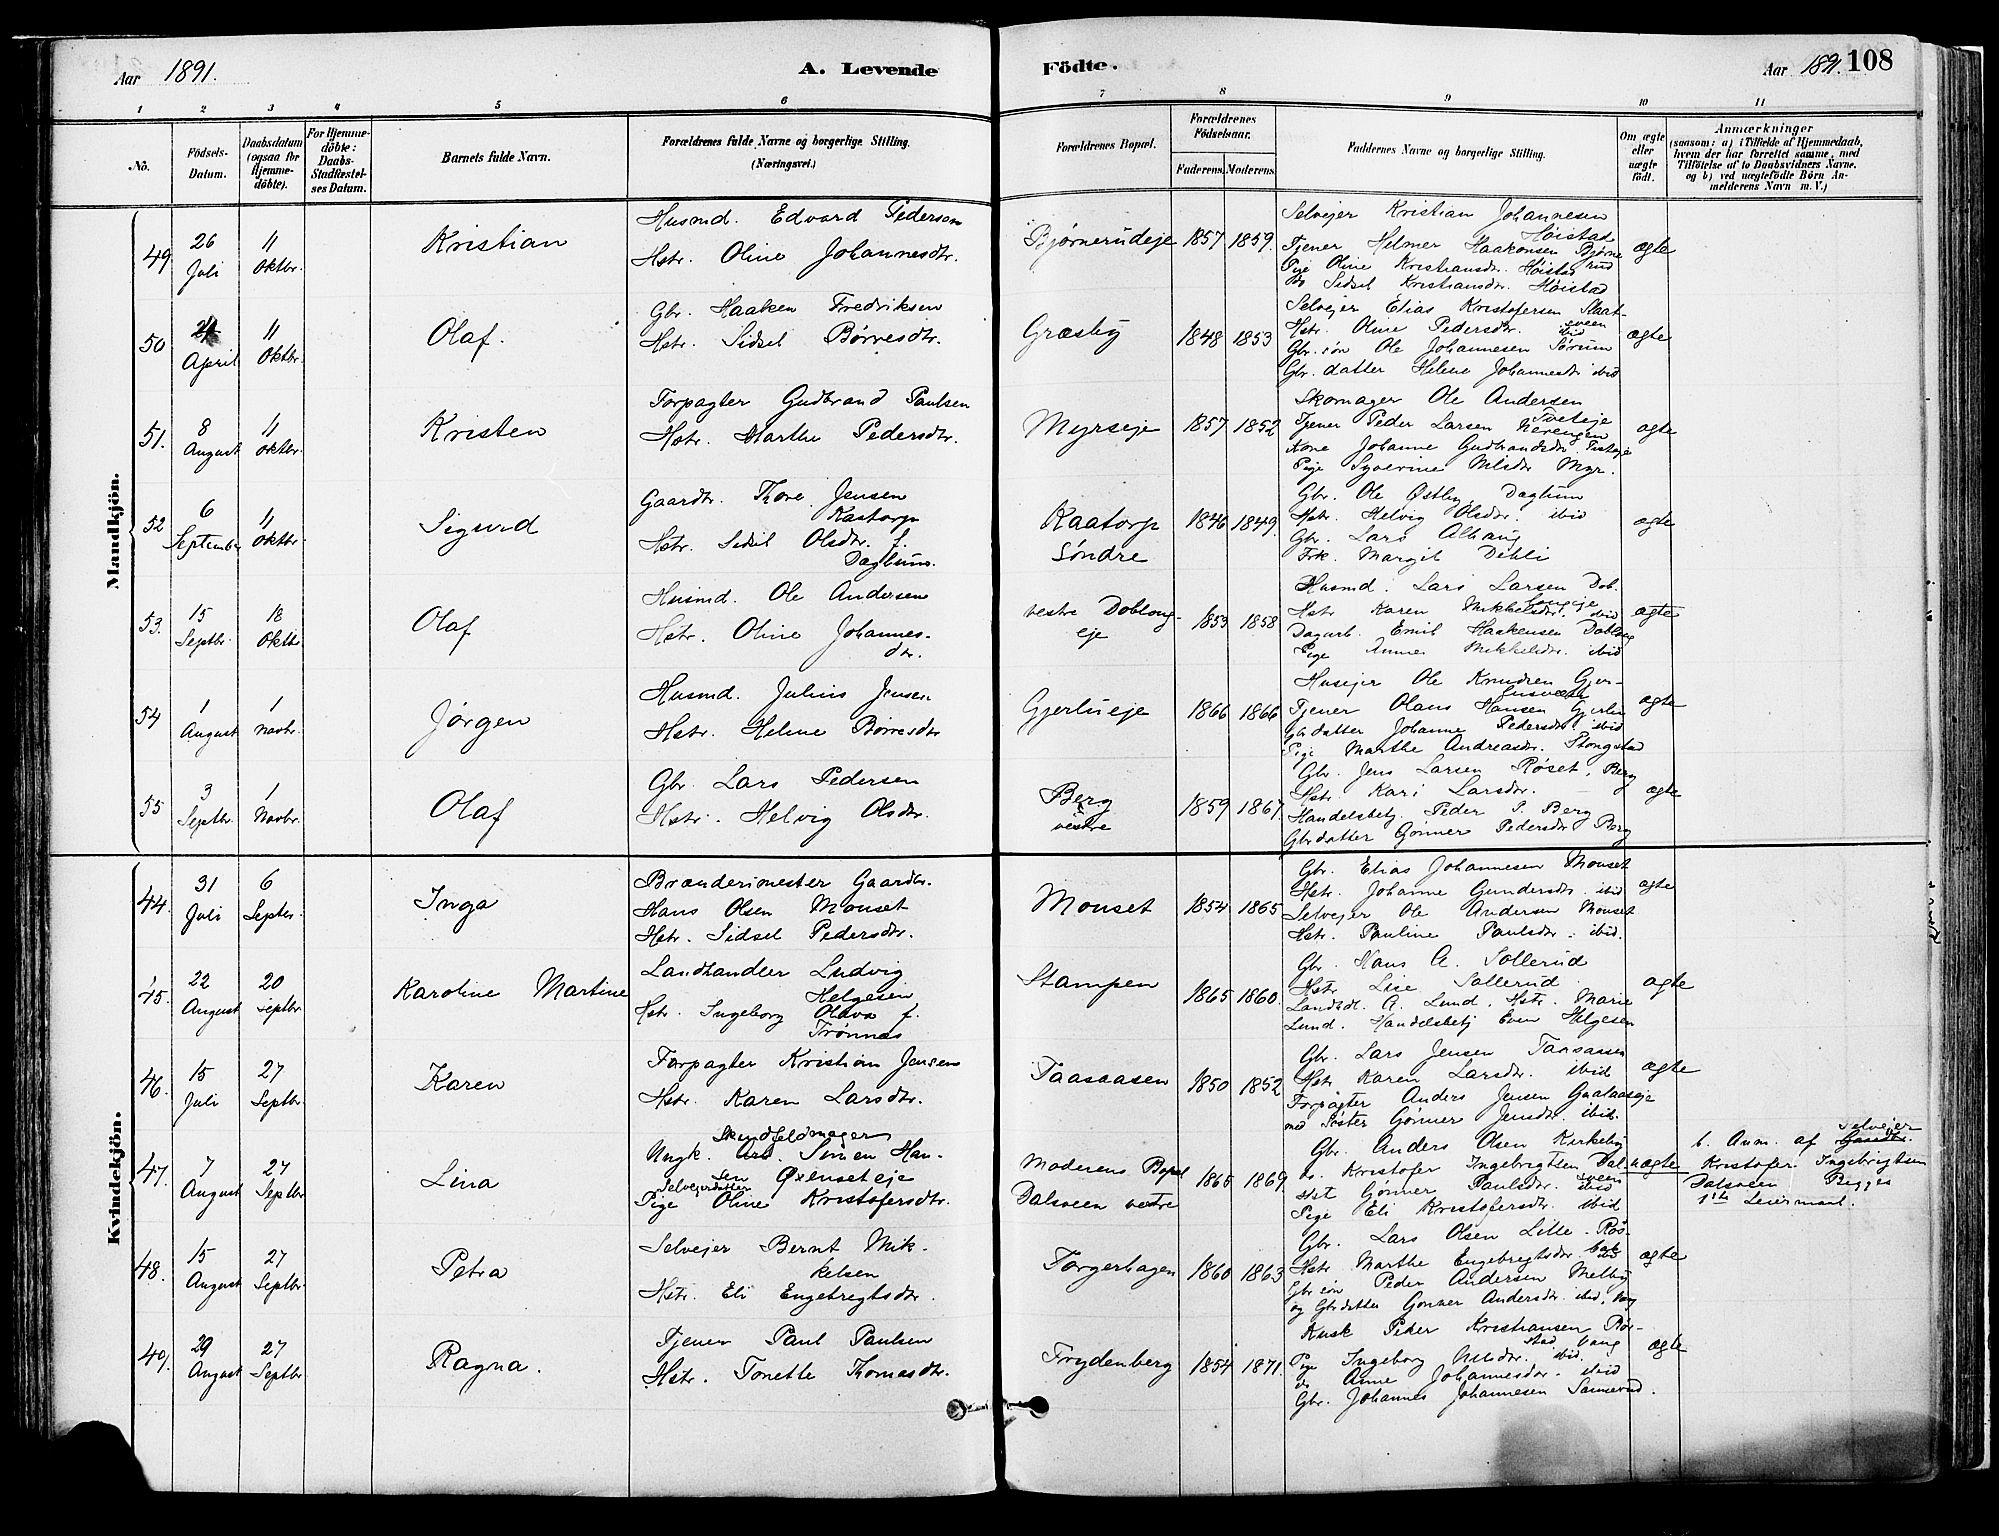 Aar 1891.
A. Levende
Födte.
Aar 1891.
108
1 2 3 4 5 6 7 8 9 10 11
No.
Födsels-Datum.
Daabsdatum (ogsaa for Hjemmedöbte).
For Hjemmedöbte: Daabs-Stadfæstelses Datum.
Barnets fulde Navn.
Forældrenes fulde Navne og borgerlige Stilling. (Næringsvei.)
Forældrenes Bopæl.
Forældrenes Födselsaar.
Faderens. Moderens.
Faddernes Navne og borgerlige Stilling.
Om ægte eller uægte födt.
Anmærkninger
(saasom: a) i Tilfælde af Hjemmedaab, hvem der har forrettet samme, med Tilföielse af to Daabsvidners Navne. og b) ved uægtefödte Börn Anmelderens Navn m. V.)
Mandkjön.
49 26 Juli 11 Oktbr. Kristian
Husmd. Edvard Pedersen
Hstr. Oline Johannesdtr.
Bjørnerudeje 1857 1859.
Selvejer Kristian Johannesen Høistad
Tjener Helmer Haakonsen Bjørnerud
Pige Oline Kristiansdr. Høistad
Ds Sidsel Kristiansdr. Høistad
ægte
50 April 11 Oktbr. Olaf.
Gbr. Haaken Fredriksen
Hstr. Sidsel Børresdtr.
Græsby 1848 1853
Selvejer Elias Kristofersen Slaatsveen
Hstr. Oline Pedersdtr. ibid
Gbr. søn Ole Johannesen Sørum
Gbr. datter Helene Johannesdr ibid
ægte
51. 8 August 11 Oktbr. Kristen
Forpagter Gudbrand Paulsen
Hstr. Marthe Pedersdtr.
Myrseje 1857 1852
Skomager Ole Andersen
Tjener Peder Larsen
Kone Johanne Gudbrandsdr.
Pige Syverine Nilsdr Myr.
ægte
52 6 September 11 Oktbr. Sigurd
Gaardbr. Thore Jensen Kaatorp
Hstr. Sidsil Olsdtr. f. Daglum.
Kaatorp Søndre 1846 1849.
Gbr. Ole Østby, Daglum
Hstr. Helvig Olsdr. ibid
Gbr. Lars Alhaug
Frk. Margit Dæhli
ægte
53. 15 Septbr. 18 Oktbr. Olaf
Husmd. Ole Andersen
Hstr. Oline Johannesdtr.
vestre Doblougeje 1853 1858
Husmd. Lars Larsen Doblougeje
Hstr Karen Mikkelsdr. ibid
Dagarb. Emil Haakensen Dobloug
Pige Anne Mikkelsdr. ibid
ægte
54 1 August 1 Novbr. Jørgen
Husmd. Julius Jensen
Hstr. Helene Børresdtr
Gjerlueje 1866 1866
Husejer Ole Knudsen
Tjener Olaus Hansen Gjerlu
Gbrdatter Johanne Pedersdtr. ibid
Pige Marthe Andreasdr. Stongstad
ægte
55 3 Septbr. 1 Novbr. Olaf
Gbr. Lars Pedersen
Hstr. Helvig Olsdtr.
Berg vestre 1859 1867.
Gbr. Jens Larsen Røset, Berg
Hstr. Kari Larsdr.
Handelsbetj. Peder P. Berg
Gbrdatter Gønner Pedersdtr Berg
ægte
Kvindekjön.
44. 31 Juli 6 Septbr. Inga
Brænderimester Gaardbr.
Hans Olsen Monset
Hstr. Sidsel Pedersdtr.
Monset 1854 1865
Gbr. Elias Johannesen Monset
Hstr. Johanne Gundersdtr. ibid
Selvejer Ole Andersen Monset
Hstr. Pauline Paulsdr. ibid.
ægte
45. 22 August 20 Septbr. Karoline Martine
Landhandler Ludvig Helgesen
Hstr. Ingeborg Olava f. Trønnes
Stampen 1865 1860.
Gbr. Hans A. Sollerud
Hstr Lise Sollerud
Landhdl. A. Lund, Hstr. Marie
Lund. Handelsbetj Even Helgesen
ægte
46. 15 Juli 27 Septbr. Karen
Forpagter Kristian Jensen
Hstr. Karen Larsdtr.
Taasaasen 1850 1852
Gbr. Lars Jensen Taasaasen
Hstr Karen Larsdr. ibid
Forpagter Anders Jensen Gaalaaseje
med Søster Gønner Jensdr. ibid.
ægte
47. 7 August 27 Septbr Lina
Ungk. Skindfeldmager Simen Hansen Øxenseteje
Selvejerdatter Pige Oline Kristofersdtr.
Moderens Bopæl Dalsveen vestre 1865 1869.
Gbr. Anders Olsen Kirkeby
s. Kristofer Ingebrigtsen Dalsveen
Hst Gønner Paulsdr. ibid
Pige Eli Kristofersdr. ibid
uægte
b. Anm. af Selvejer
Kristofer Ingebrigtsen
Dalsveen Begges
1ste Leiermaal.
48. 15 August 27 Septbr. Petra
Selvejer Bernt Mikkelsen
Hstr. Eli Engebrigtsdtr.
Torgerhagen 1860 1863
Gbr. Lars Olsen Lille-
Hstr Marthe Engebrigtsdr ibid
Gbr. søn Peder Andersen Melby
og Gbrdatter Gønner Andersdr. ibid, Vang
ægte
49. 29 August 27 Septbr Ragna.
Tjener Paul Paulsen
Hstr. Tonette Thomasdtr.
Frydenberg 1854 1871.
Kusk Peder Kristiansen Rørstad Vang
Pige Ingeborg Olsdr. ibid.
ds Anne Johannesdr. ibid
Gbr. Johannes Johannesen Samserud.
ægte